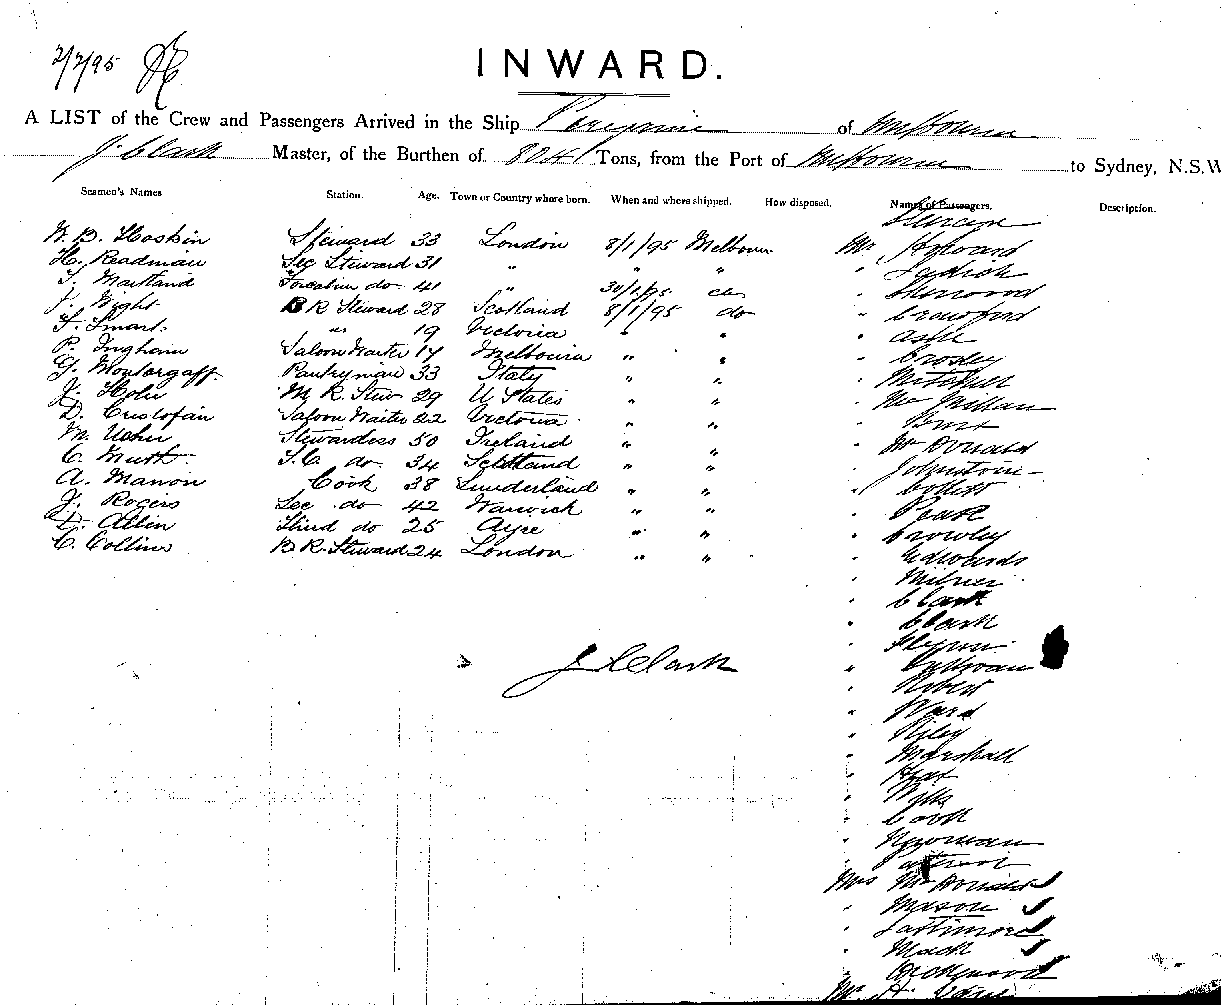 2/2/95
INWARD.
A LIST of the Crew and Passengers Arrived in the Ship Peregrine of Melbourne
J. Clark Master, of the Burthen of 804 Tons, from the Port of Melbourne to Sydney, N.S.W
Seamen's Names Station. Age. Town or Country where born. When and where shipped. How disposed. Names of Passengers. Description.
W. B. Hoskin Steward 33 London 8/1/95 Melbourn Mr Howard
H. Readman Sec Steward 31 " " "
T. Maitland Forecabin do 41 " 30/1/95 do " Sherwood
J. Wight B R Steward 28 Scotland 8/1/95 do " Crawford
F. Smart " 19 Victoria " " " Ash
P. Ingham Saloon Waiter 17 Melbourne " " " Crosley
G. Pantryman 33 Italy " " " Mitchell
J. M. R. Stew 29 U States " " " Mc Millan
D. Cristofan Saloon Waiter 22 Victoria " " "
M. Usher Stewardess 50 Ireland " " " McDonald
C. S.C. do 34 Scotland " " Johnston
A. Manon Cook 38 Sunderland " " "
J. Rogers Sec do 42 Warwick " " " Peak
D. Allen Third do 25 Ayre " " " Crowley
C. Collins B R. Steward 24 London " " " Edwards
" Milner
" Clark
" Clark
" Flynn
J Clark " Sullivan
" Robert
" Ward
" Riley
" Marshall
"
"
" Cook
"
"
Mrs McDonald
" Mason
" Lattimore
" Mack
"
Mr H.